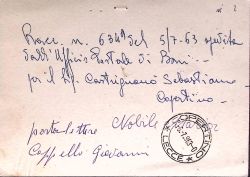 Racc. n. 6349 del 5/7-63 spedita
dall'Ufficio Postale di Bari
per il Sig. Castrignanò Sebastiano
Copertino
portalettere Nobile
Cappello Giovanni
COPERTINO
LECCE